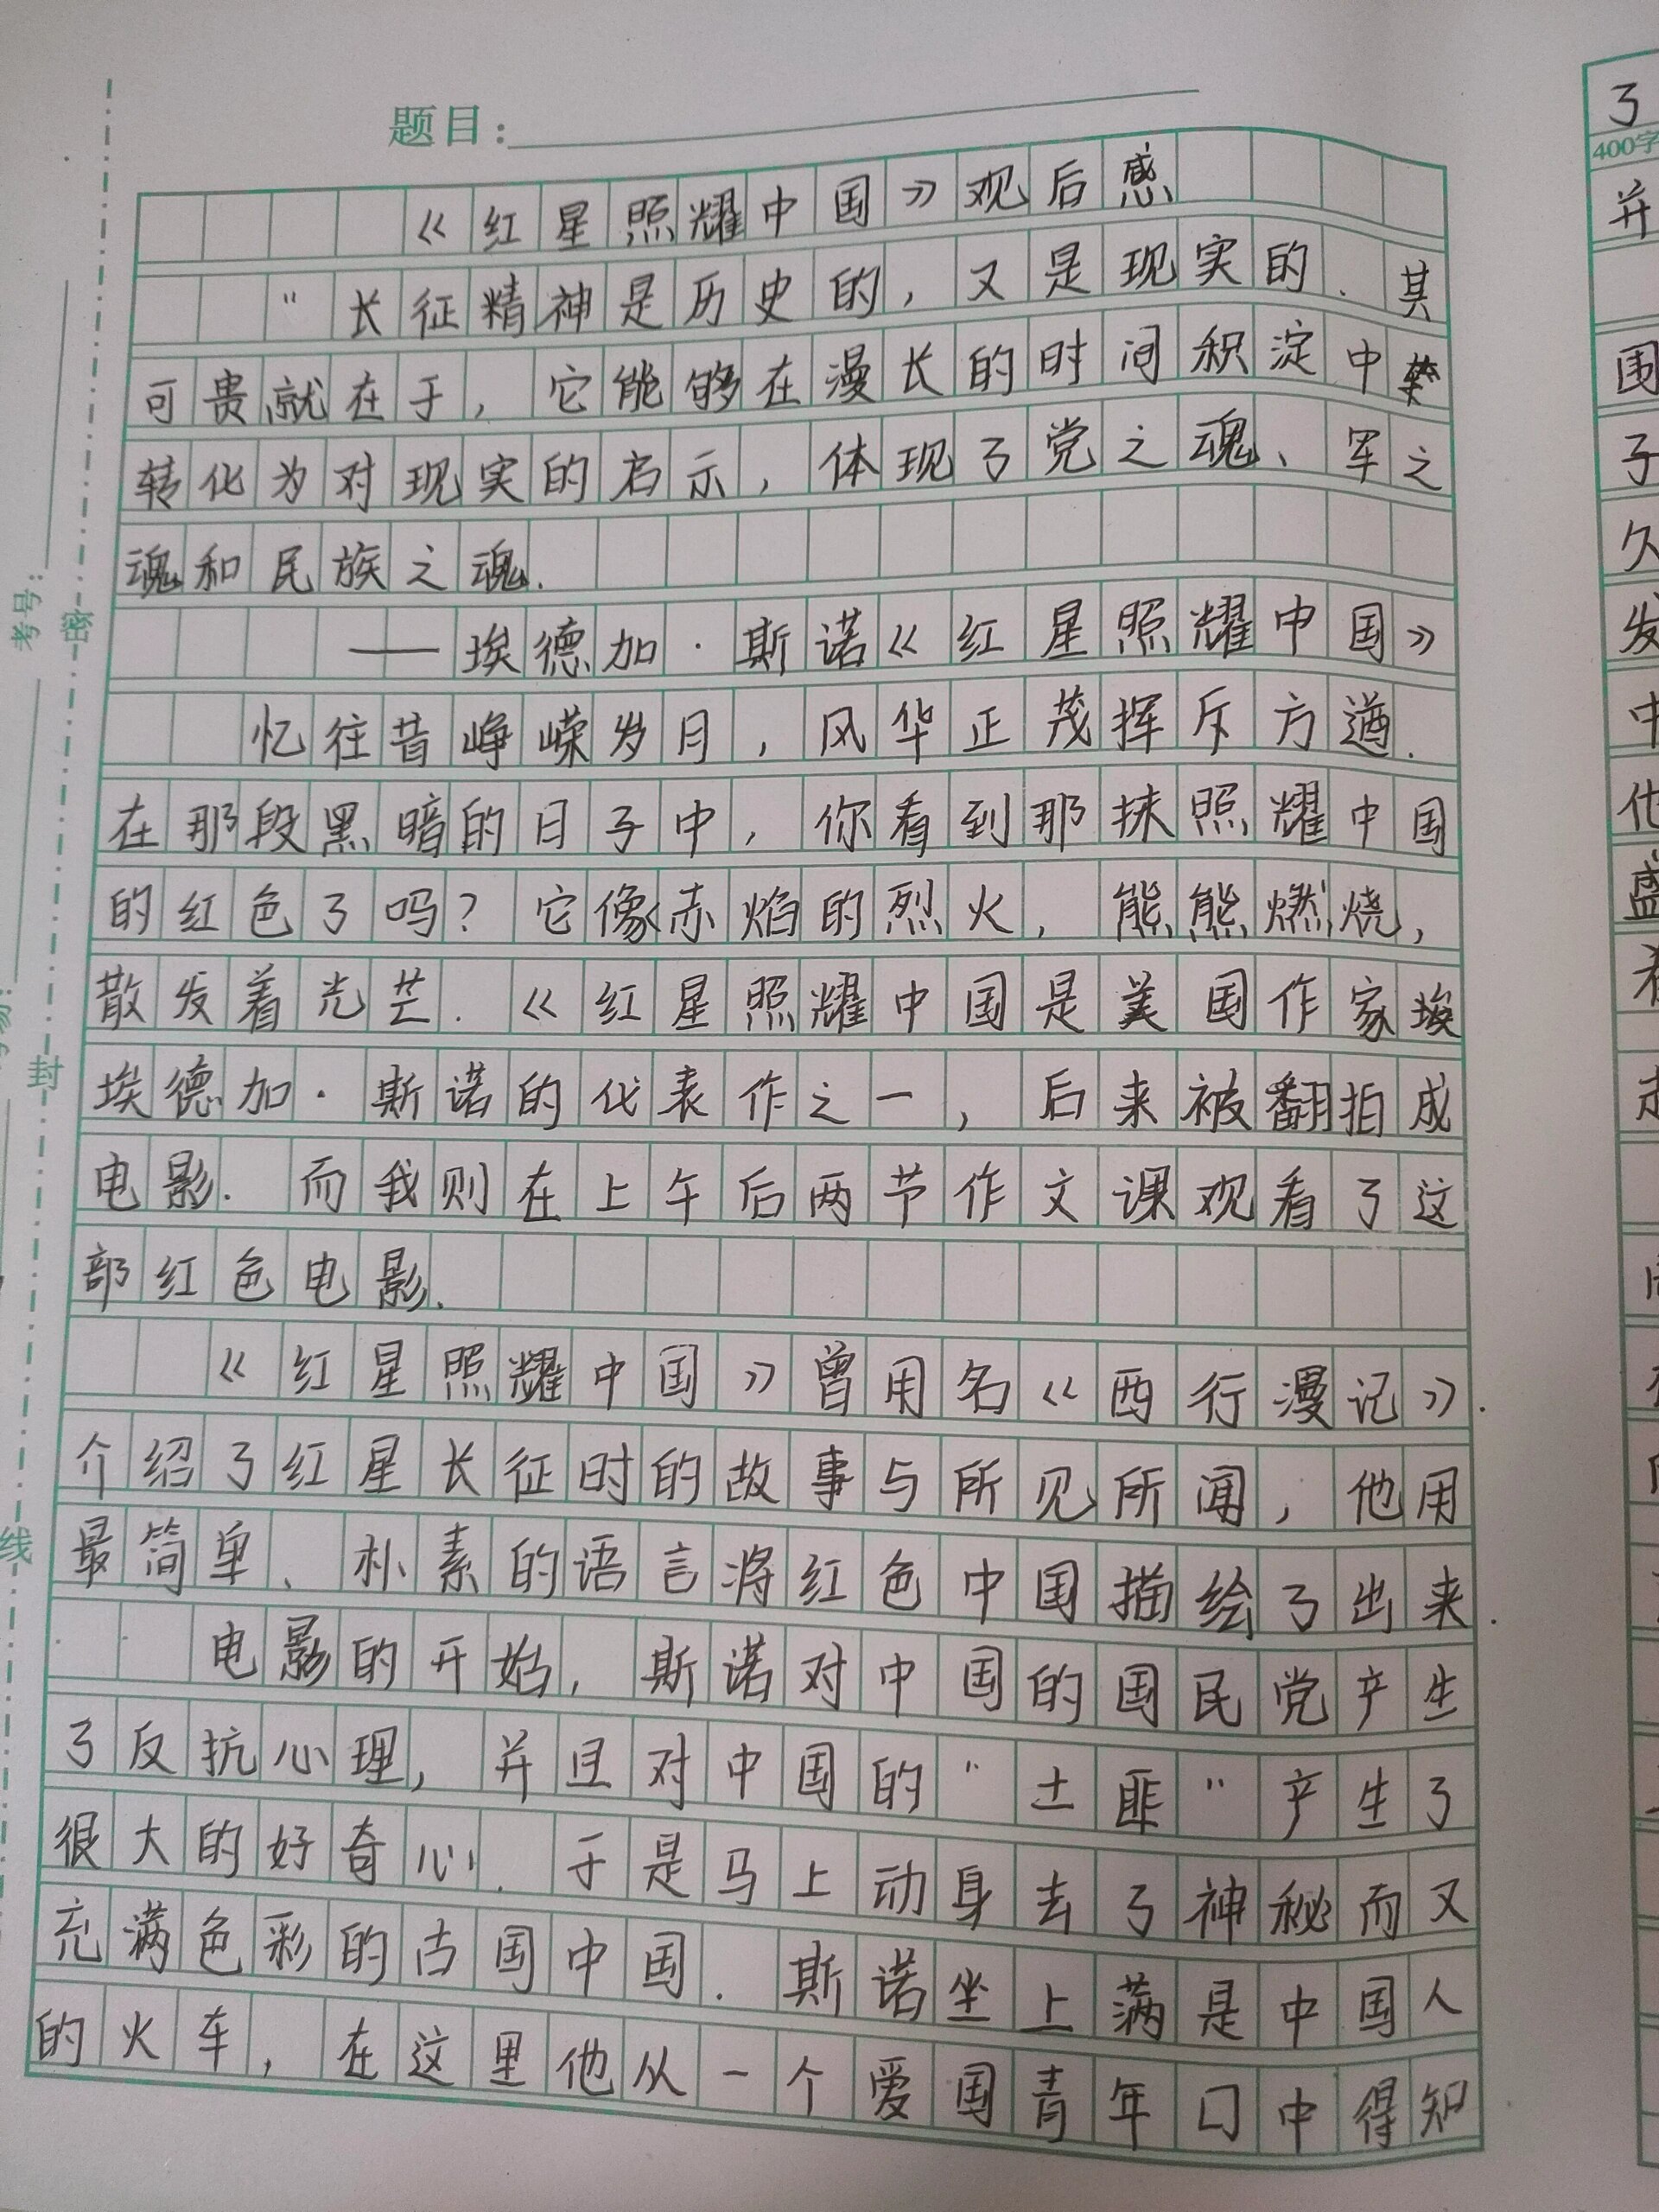 题目:
《红星照耀中国》观后感
"长征精神是历史的,又是现实的.其
可贵就在于,它能够在漫长的时间积淀中
转化为对现实的启示,体现了党之魂、军之
魂和民族之魂.
——埃德加·斯诺《红星照耀中国》
忆往昔峥嵘岁月,风华正茂挥斥方遒.
在那段黑暗的日子中,你看到那抹照耀中国
的红色了吗?它像赤焰的烈火,熊熊燃烧,
散发着光芒.《红星照耀中国是美国作家埃
埃德加·斯诺的代表作之一,后来被翻拍成
电影.而我则在上午后两节作文课观看了这
部红色电影.
《红星照耀中国》曾用名《西行漫记》.
介绍了红星长征时的故事与所见所闻,他用
最简单、朴素的语言将红色中国描绘了出来.
电影的开始,斯诺对中国的国民党产生
了反抗心理,并且对中国的"土匪"产生了
很大的好奇心.于是马上动身去了神秘而又
充满色彩的古国中国.斯诺坐上满是中国人
的火车,在这里他从一个爱国青年口中得知
考号:
密
封
线
了
400字
并
围
子
久
发
中
他
盛
着
走